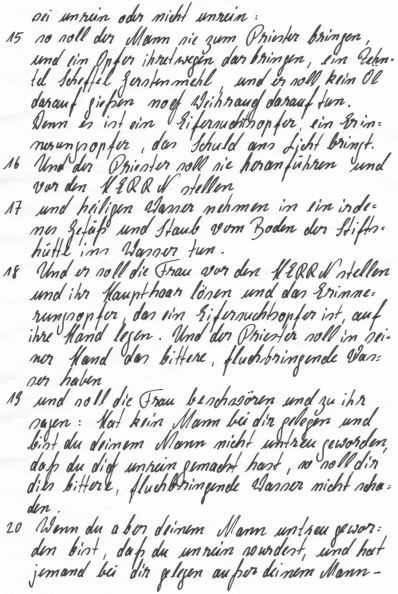 sei unrein oder nicht unrein:
15 so soll der Mann sie zum Priester bringen,
und ein Opfer ihretwegen darbringen, ein Zehn-
tel Scheffel Gerstenmehl, und er soll kein Öl
darauf gießen noch Weihrauch darauf tun.
Denn es ist ein Eifersuchtsopfer, ein Erin-
nerungsopfer, das Schuld ans Licht bringt.
16 Und der Priester soll sie heranführen und
vor den HERRN stellen
17 und heiligen Wasser nehmen in ein irde-
nes Gefäß und Staub vom Boden der Stifts-
hütte ins Wasser tun.
18 Und er soll die Frau vor den HERRN stellen
und ihr Haupthaar lösen und das Erinne-
rungsopfer, das ein Eifersuchtsopfer ist, auf
ihre Hand legen. Und der Priester soll in sei-
ner Hand das bittere, fluchbringende Was-
ser haben
19 und soll die Frau beschwören und zu ihr
sagen: Hat kein Mann bei dir gelegen und
bist du deinem Mann nicht untreu geworden,
daß du dich unrein gemacht hast, so soll dir
dies bittere, fluchbringende Wasser nicht scha-
den.
20 Wenn du aber deinem Mann untreu gewor-
den bist, daß du unrein wurdest, und hat
jemand bei dir gelegen außer deinem Mann-